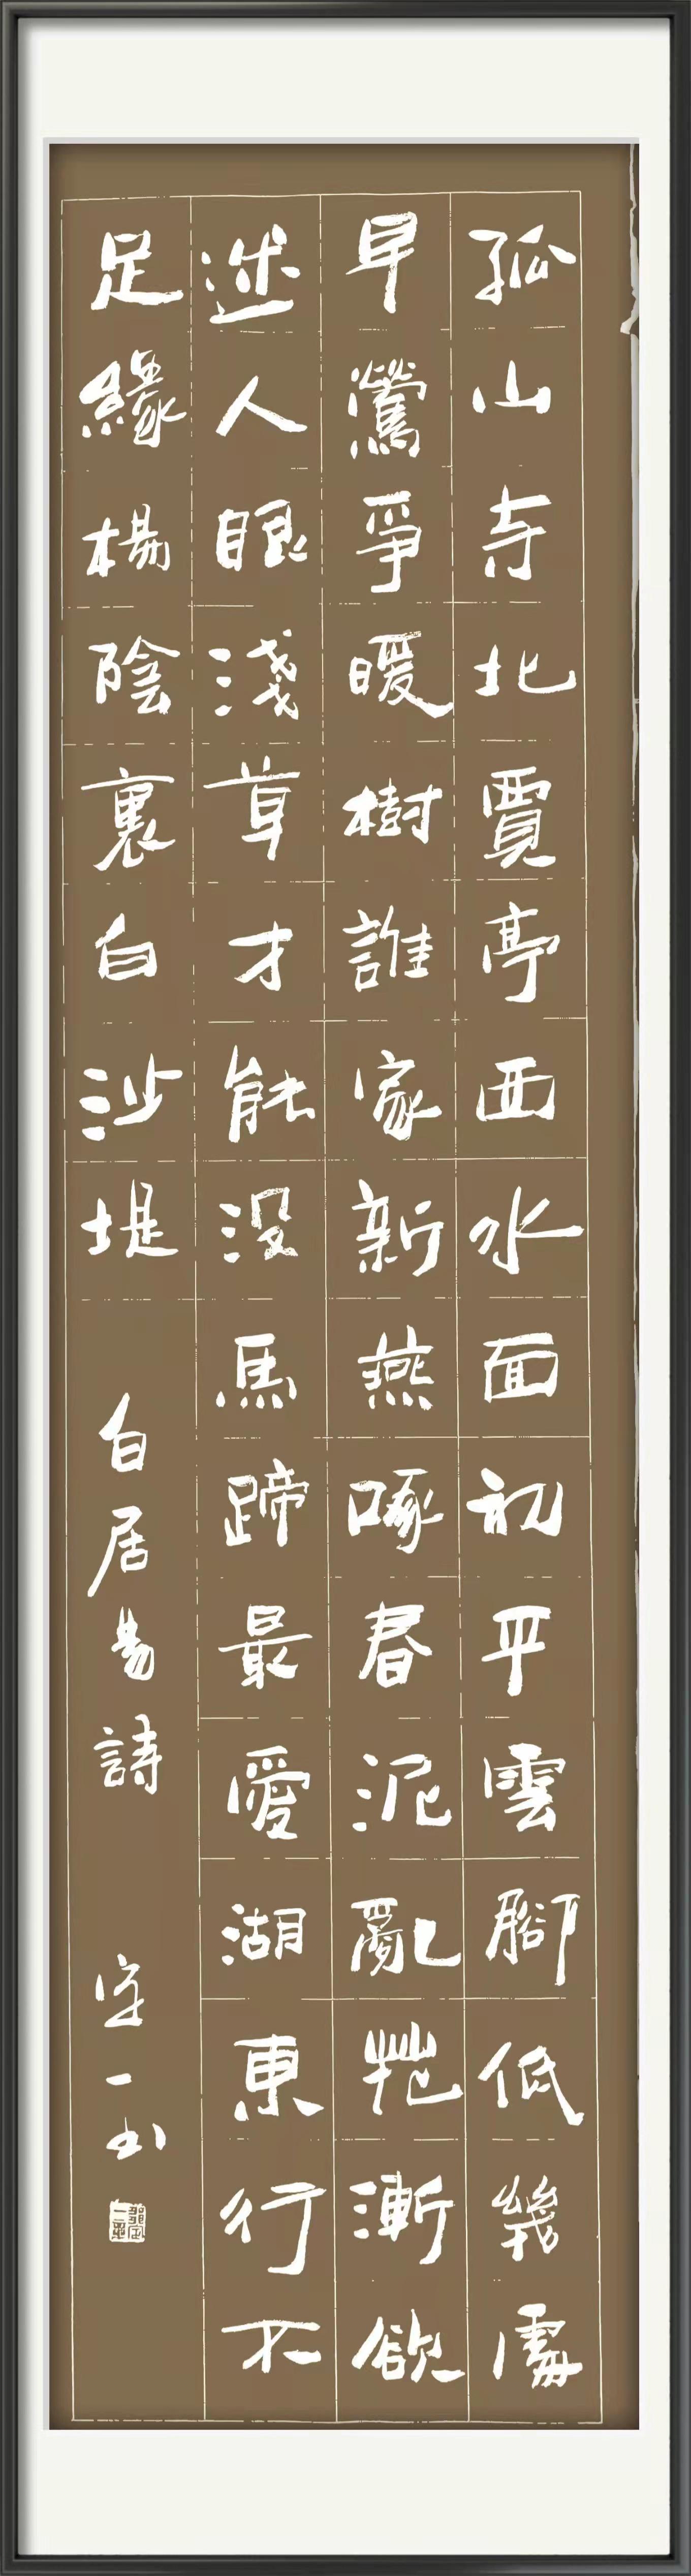 孤山寺北賈亭西水面初平雲腳低幾處
早鶯爭暖樹誰家新燕啄春泥亂花漸欲
迷人眼淺草才能沒馬蹄最愛湖東行不
足緣楊陰裏白沙堤
白居易詩
定一书